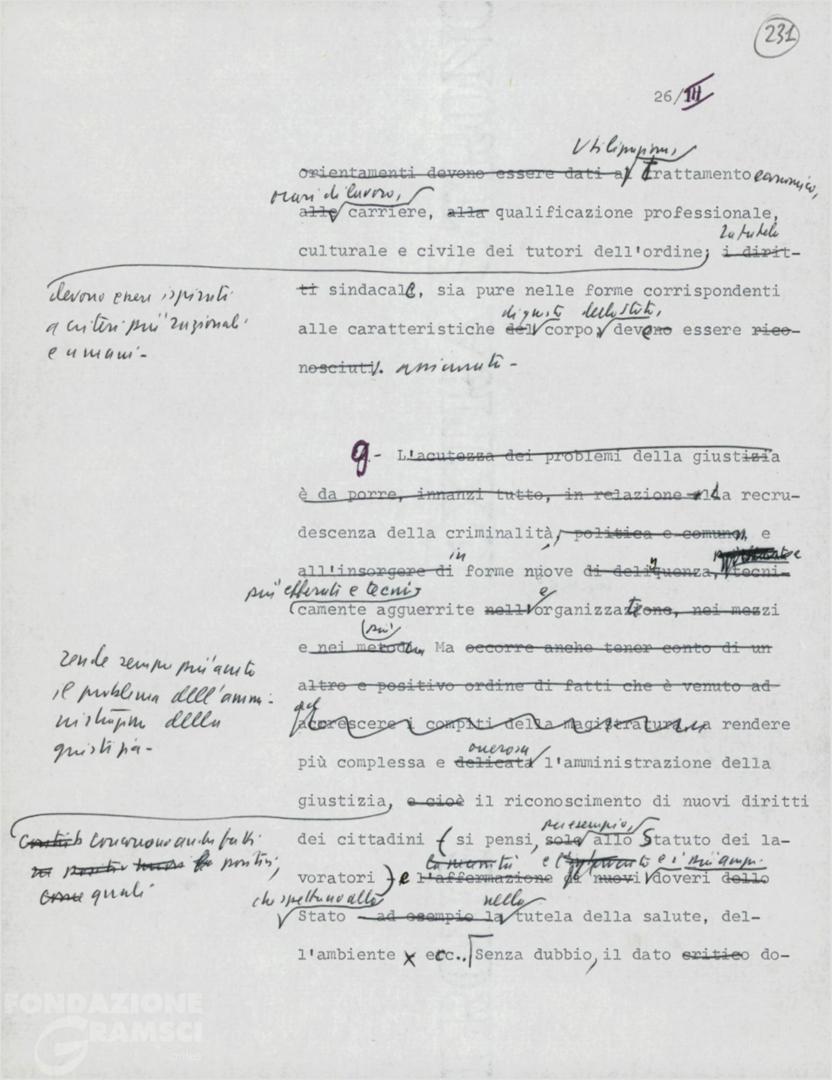 231
26/III
Utilizzazione,
orientamenti devono essere dati al Trattamento economico,
orari di lavoro,
alle carriere, alla qualificazione professionale,
la tutela
culturale e civile dei tutori dell'ordine; i dirit-
devono essere ispirati
a criteri più razionali
e umani-
ti sindacale, sia pure nelle forme corrispondenti
di questo dello Stato,
alle caratteristiche del corpo, devono essere rico-
nosciuti. assicurati-
g- L'acutezza dei problemi della giustizia
è da porre, innanzi tutto, in relazione alla recru-
descenza della criminalità, politica e comune, e
in
all'insorgere di forme nuove di delinquenza, tecni-
più efferati e tecni
camente agguerrite nell'organizzazione, nei mezzi
più
e nei metodi. Ma occorre anche tener conto di un
rende sempre più acuto
il problema dell'ammi-
nistrazione della
giustizia-
altro e positivo ordine di fatti che è venuto ad
accrescere i compiti della magistratura, a rendere
onerosa
più complessa e delicata l'amministrazione della
giustizia, e cioè il riconoscimento di nuovi diritti
concorrono anche fatti
positivi,
come quali
per esempio,
dei cittadini (si pensi, solo allo Statuto dei la-
voratori) e l'affermazione di nuovi doveri dello
che spettano allo
nella
Stato - ad esempio la tutela della salute, del-
l'ambiente ecc.. Senza dubbio, il dato critico do-
FONDAZIONE
GRAMSCI